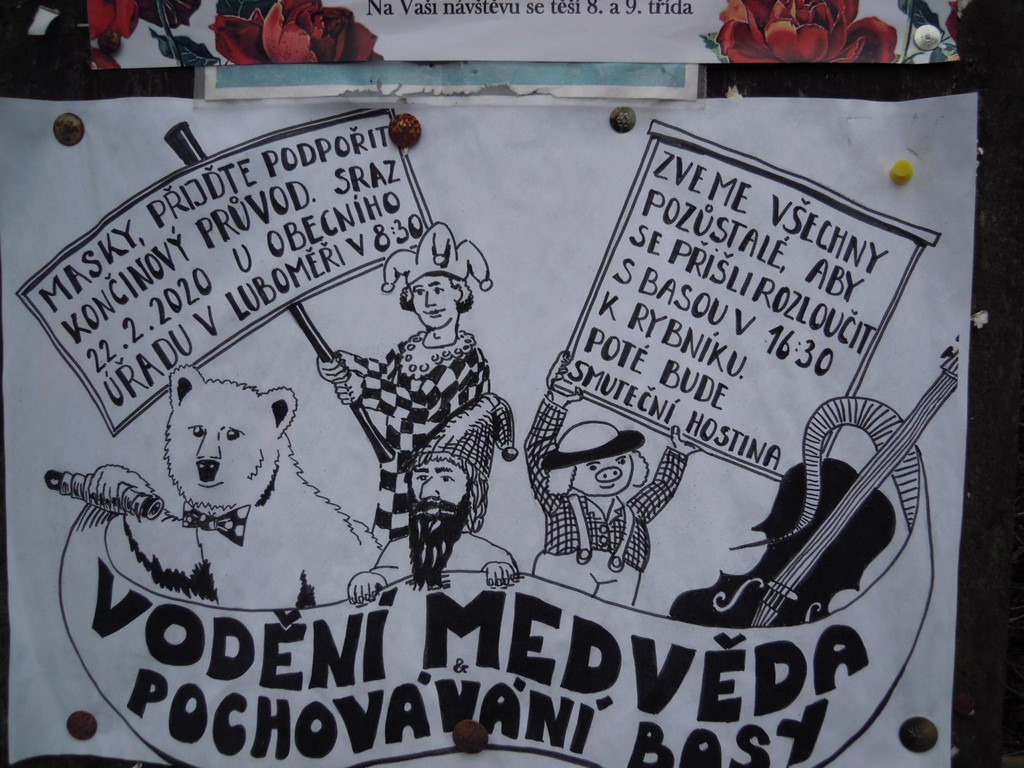 Na Vaši návštěvu se těší 8. a 9. třída
MASKY, PŘIJĎTE PODPOŘIT
KONČINOVÝ PRŮVOD. SRAZ
22.2.2020 U OBECNÍHO
ÚŘADU V LUBOMĚŘI V 8:30
ZVEME VŠECHNY
POZŮSTALÉ, ABY
SE PŘIŠLI ROZLOUČIT
S BASOU V 16:30
K RYBNÍKU.
POTÉ BUDE
SMUTEČNÍ HOSTINA
VODĚNÍ MEDVĚDA
&
POCHOVÁVÁNÍ BASY